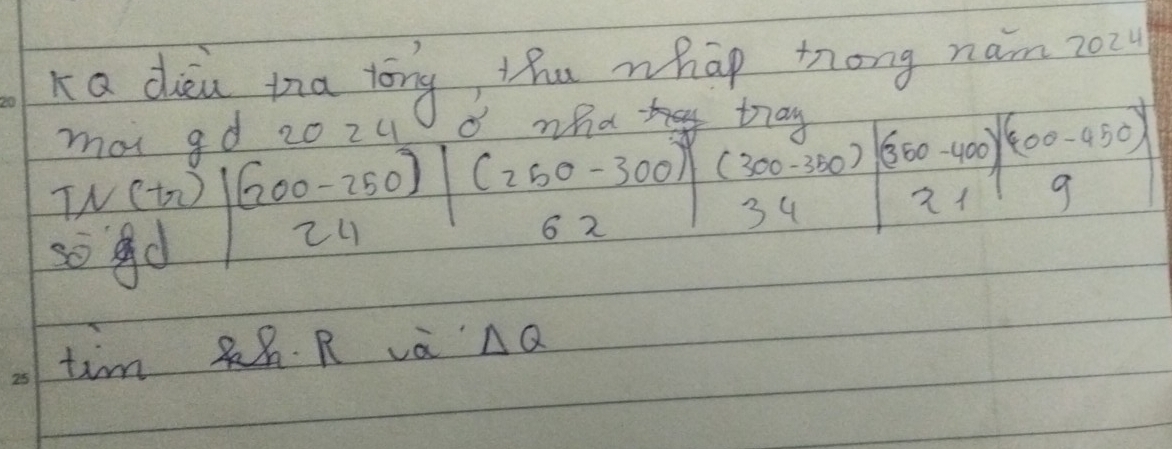 20
KQ điều tra tổng thu nhập trong năm 2024
mỗi gd 2024 ở nha trang
TN (tr) [200-250) (250-300) (300-350) (350-400) (400-450)
số gd 24 62 34 21 9
25
tìm R và ΔQ